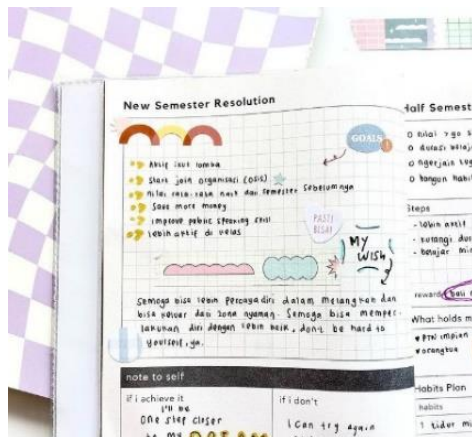 New Semester Resolution
GOALS
Aktif ikut lomba
Start join organisasi (OSIS)
Nilai rata-rata naik dari semester sebelumnya
Save more money
improve public speaking skill
lebih aktif di kelas
PASTI
BISA!
MY
WISH
Semoga bisa lebih percaya diri dalam melangkah dan
bisa keluar dari zona nyaman. Semoga bisa memper-
lakukan diri dengan lebih baik, don't be hard to
yourself, ya.
note to self
if i achieve it
I'll be
one step closer
to my DREAM
if i don't
I can try again
Half Semest
nilai > 90
durasi belaj
ngerjain tug
bangun habi
Steps
- lebih aktif
- kurangi dur
- belajar min
reward
beli
What holds m
PTN impian
orangtua
Habits Plan
habits
1 tidur m